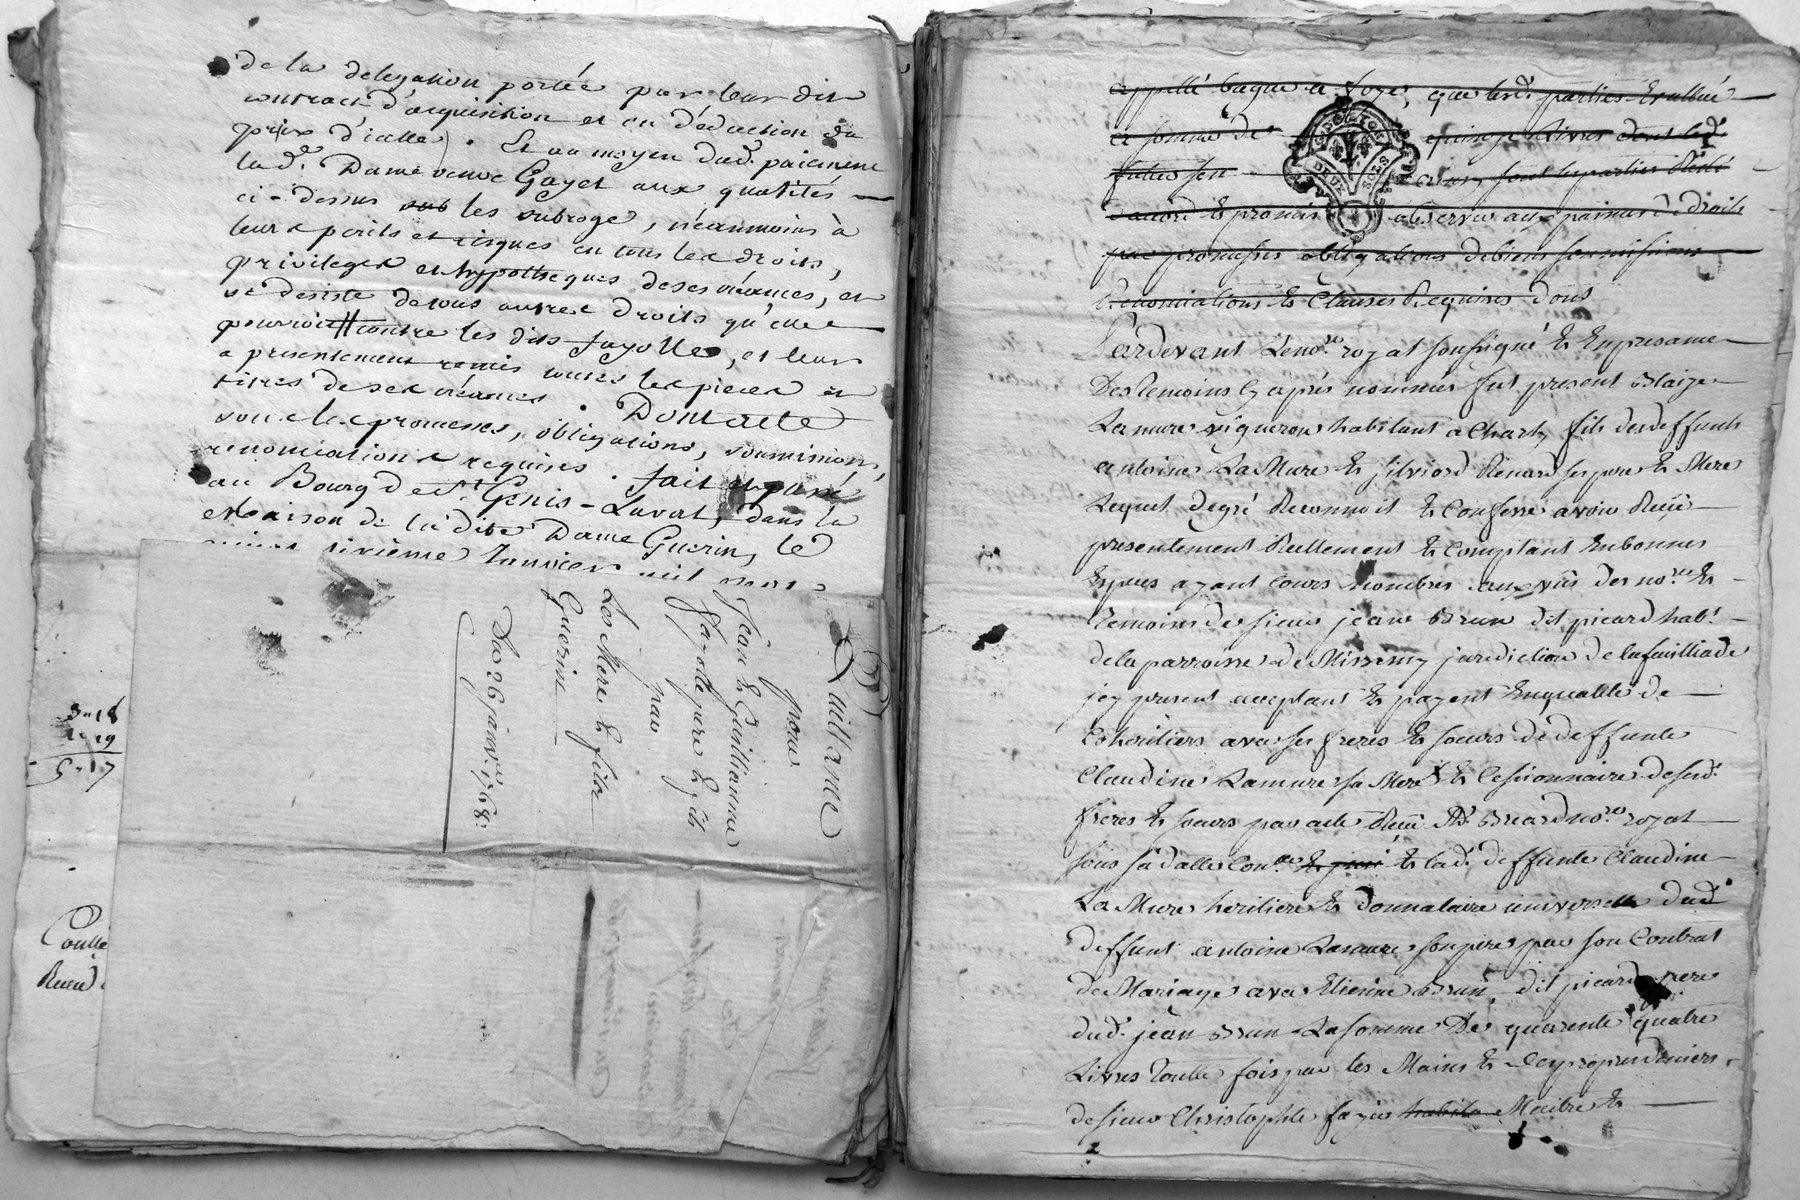 de la delegation portée par leur dit
contract d'acquisition et en déduction du
prix d'icelle). Et au moyen dud. paiement
lad.e Dame veuve Gayet aux qualités
ci-dessus sub les subroge, néanmoins à
leurs perils et risques en tous les droits,
privileges et hypotheques de ses créances, et
se desiste de tous autres droits qu'elle
pourroit contre les dits fayolles, et leur
a presentement remis toutes les pieces et
titres de ses créances. Dont acte
sous les promesses, obligations, soumissions,
renonciations requises. fait et passé
au Bourg de St Genis-Laval, dans la
Maison de la dite Dame Guerin, le
sixième Janvier mil sept
3-18
19
5-17
Coulle
Quittance
pour
Jean & Guillaume
fayolle pere & fils
par
Les Mere & fils
Guerin
Du 26 janv.er 1768.
appellé bague a foye, que lesd. parties Evallué
a somme de quinze Livres dont led.
DEUX SOLS
ainsy sont les parties
d'accord & promis observer aux peines de droits
par promesses obligations de biens soumissions
Renonciations & Clauses Requises dont
Pardevant Le no.re royal soussigné & En presance
Des temoins cy après nommés fut present Blaize
Lamure vigneron habitant a Charly fils des deffunts
antoine La Mure & Renard ses pere & Mere
Lequel de gré Reconnoit & Confesse avoir Reçu
presentement Reellement & Comptant En bonnes
Especes ayant Cours nombrés aux vüs des no.res &
temoins de sieur jean Brun dit picard hab.t
de la parroisse de Missimy jurediction de la
jcy present acceptant & payent En qualité de
Coheritiers avec ses freres & soeurs de deffunte
Claudine Lamure sa Mere & Cessionnaire de sesd.
freres & soeurs par acte Reçu no.re royal
sous sa datte & lad. deffunte Claudine
La Mure heritiere & donnataire universelle dud.
deffunt antoine Lamure son pere par son Contrat
de Mariage avec Etienne Brun, dit picard pere
dud. jean Brun La somme De quarente quatre
Livres toutte fois par les Mains & des propres deniers
de sieur Christophle habita Maitre &